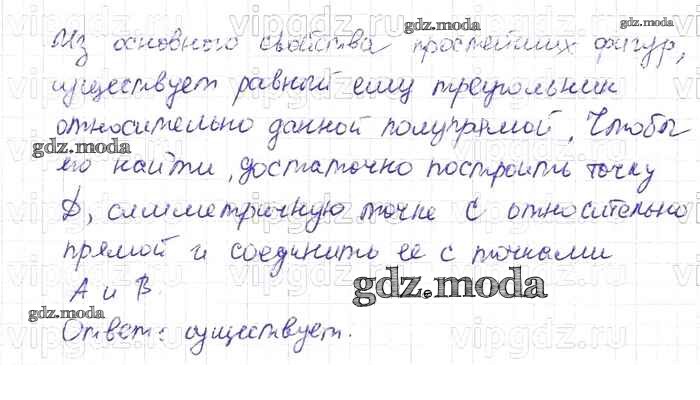 Из основного свойства простейших фигур,
существует равный ему треугольник
относительно данной полупрямой. Чтобы
его найти, достаточно построить точку
D, симметричную точке C относительно
прямой и соединить её с точками
A и B.
Ответ: существует.
gdz.moda
gdz.moda
gdz.moda
gdz.moda
gdz.moda
vipgdz.ru